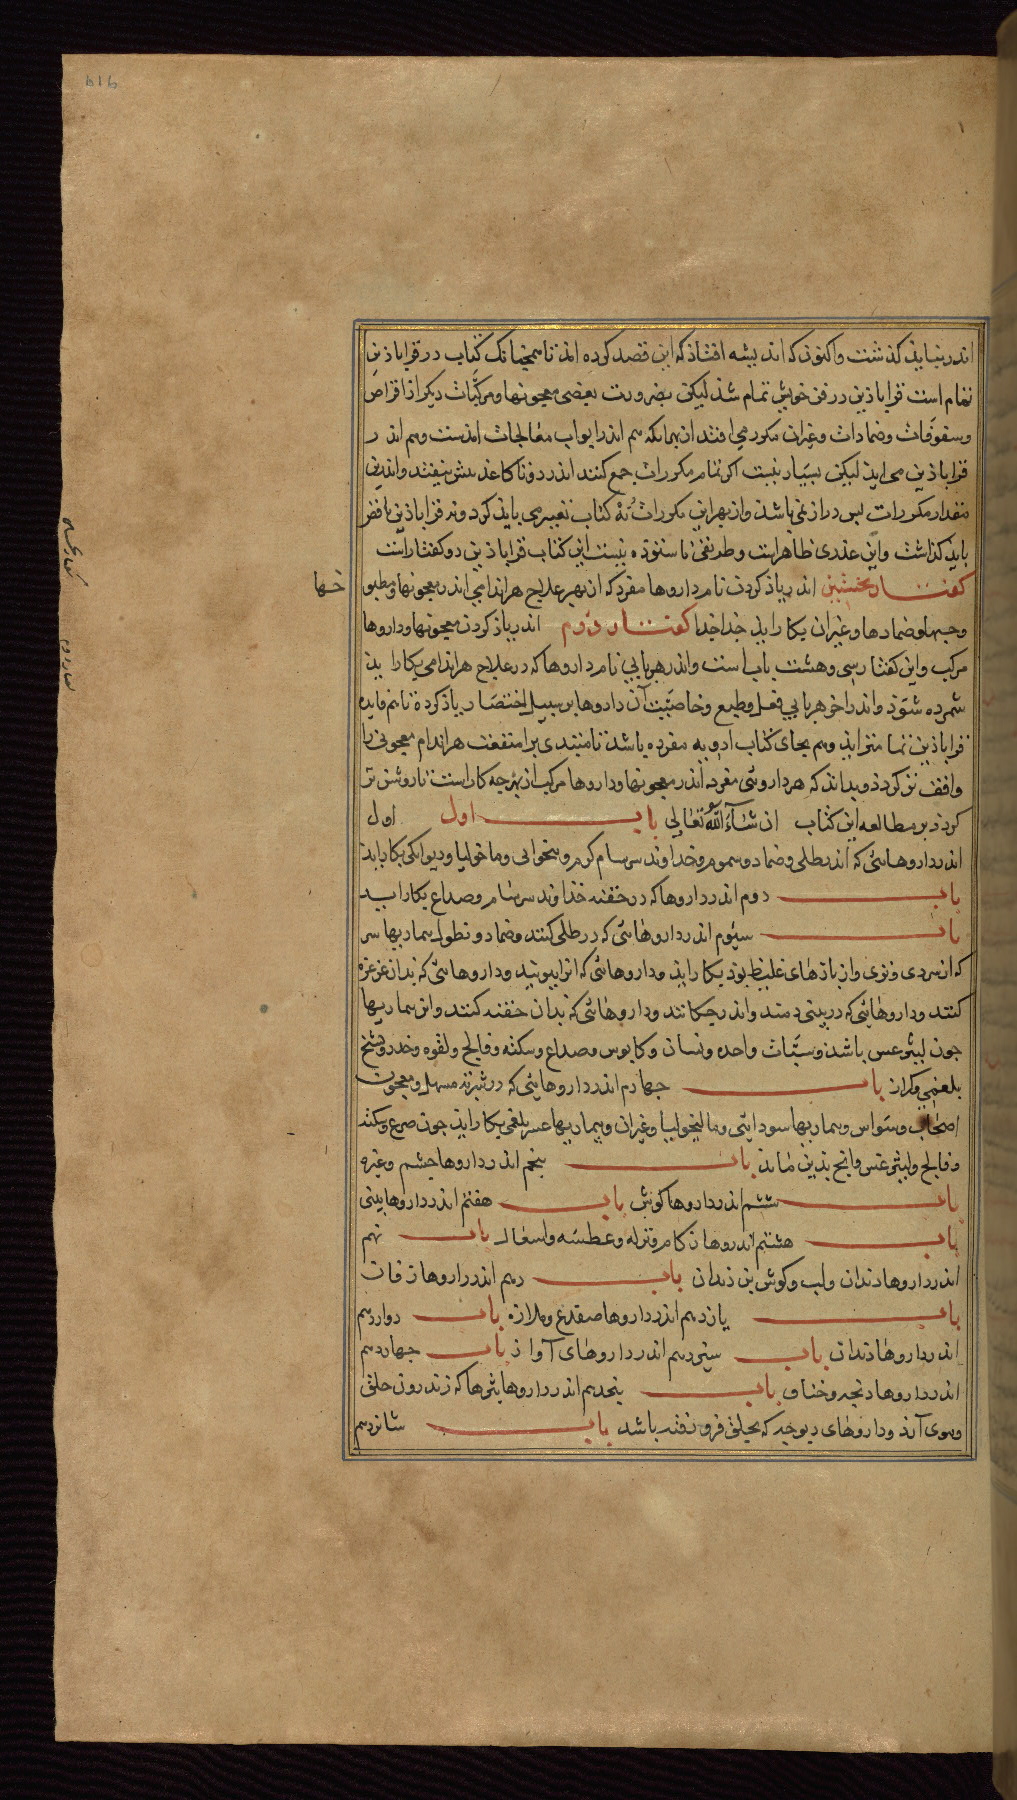 اندرین باید کذشت واکنون که اندیشه افتاذ که این قصد کرده اند تا همچنانک کتاب در قراباذین
تمام است قراباذین در فن خویش تمام شذ لیکن بضرورت بعضی معجونها ومرکّبات دیکر از اقراص
وسفوفات وضمادات وغیران مکرر می افتد از بهرانکه هم اندر ابواب معالجات اندست وهم اندر
قراباذین می ایذ لیکن بسیار نیست اکر تمام مکررات جمع کنند اندر دوتا کاغذ بیش نیفتد واندین
مقدار مکررات بس دراز نمی باشذ واز بهر این مکررات نه کتاب تغییر می باید کرد ونه قراباذین ناقص
بایذ کذاشت واین عذری ظاهرست وطریقی ناستوده نیست این کتاب قراباذین دو کفتارست
کفتار نخستین اندر یاذ کردن نام داروها مفرد که از بهر علاج هر اندامی اندر معجونها ومطبو
خها
وحبها وضمادها وغیران بکار ایذ جذا جذا کفتار دوم اندر یاذ کردن معجونها وداروها
مرکب واین کفتار سی وهشت باب است واندر هر بابی نام داروها که در علاج هر اندامی بکار ایذ
شمرده شوذ واندر اخر هر بابی فعل وطبع وخاصیّت آن داروها بر سبیل اختصار یاذ کرده تا هم فایده
قراباذین تمامتر ایذ وهم بجای کتاب ادویه مفرده باشذ تا مبتدی بر منفعت هر اندام معجونی را
واقف تر کردذ وبداند که هر داروئی مفرد اندر معجونها وداروها مرکب از بهر چه کارست تا روشن تر
کردذ بر مطالعه این کتاب ان شآءالله تعالی باب اول اول
اندر داروهائی که اندر طلی وضماد ومشموم خداوند سرسام کرم وبیخوابی ومالخولیا ودیوانکی بکار بایذ
باب دوم اندر داروها که در حقنه خذاوند سرسام وصداع بکار اید
باب سیوم اندر داروهائی که در طلی کنند وضماد ونطول بیماریها سر
که از سردی وتری واز باذهای غلیظ بوذ بکار ایذ وداروهائی که انرا ببویند وداروهائی که بدان غرغره
کنند وداروهائی که در بینی دمند واندر چکانند وداروهائی که بدان حقنه کنند وانر بیماریها
چون لیثرغس باشذ وسبات واحده ونسان وکابوس وصداع وسکته وفالج ولقوه وخدر وتشنج
بلغمی وکزاز باب چهارم اندر داروهائی که در شربتها مسهل ومعجون
اصحاب وسواس وبیماریها سودائی ومالیخولیا وغیران وبیماریها سر بلغمی بکار ایذ چون صرع وسکته
وفالج ولیثرغس وانج بذین ماند باب پنجم اندر داروها چشم وغیره
باب ششم اندر داروها کوش باب هفتم اندر داروها بینی
باب هشتم اندروها زکام ونزله وعطسه واسعال باب نهم
اندر داروها دندان ولب وکوش بن دندان باب دهم اندر داروها زفان
باب یازدهم اندر داروها ضفدع وملازه باب دوازدهم
اندر داروها دندان باب سیزدهم اندر داروهای آواز باب چهاردهم
اندر داروها ذبحه وخناق باب پنجدهم اندر داروهائی ها که زندرون حلق
وسوی آنذ وداروهای دیوجه که بحلق فرو رفته باشد باب شانزدهم